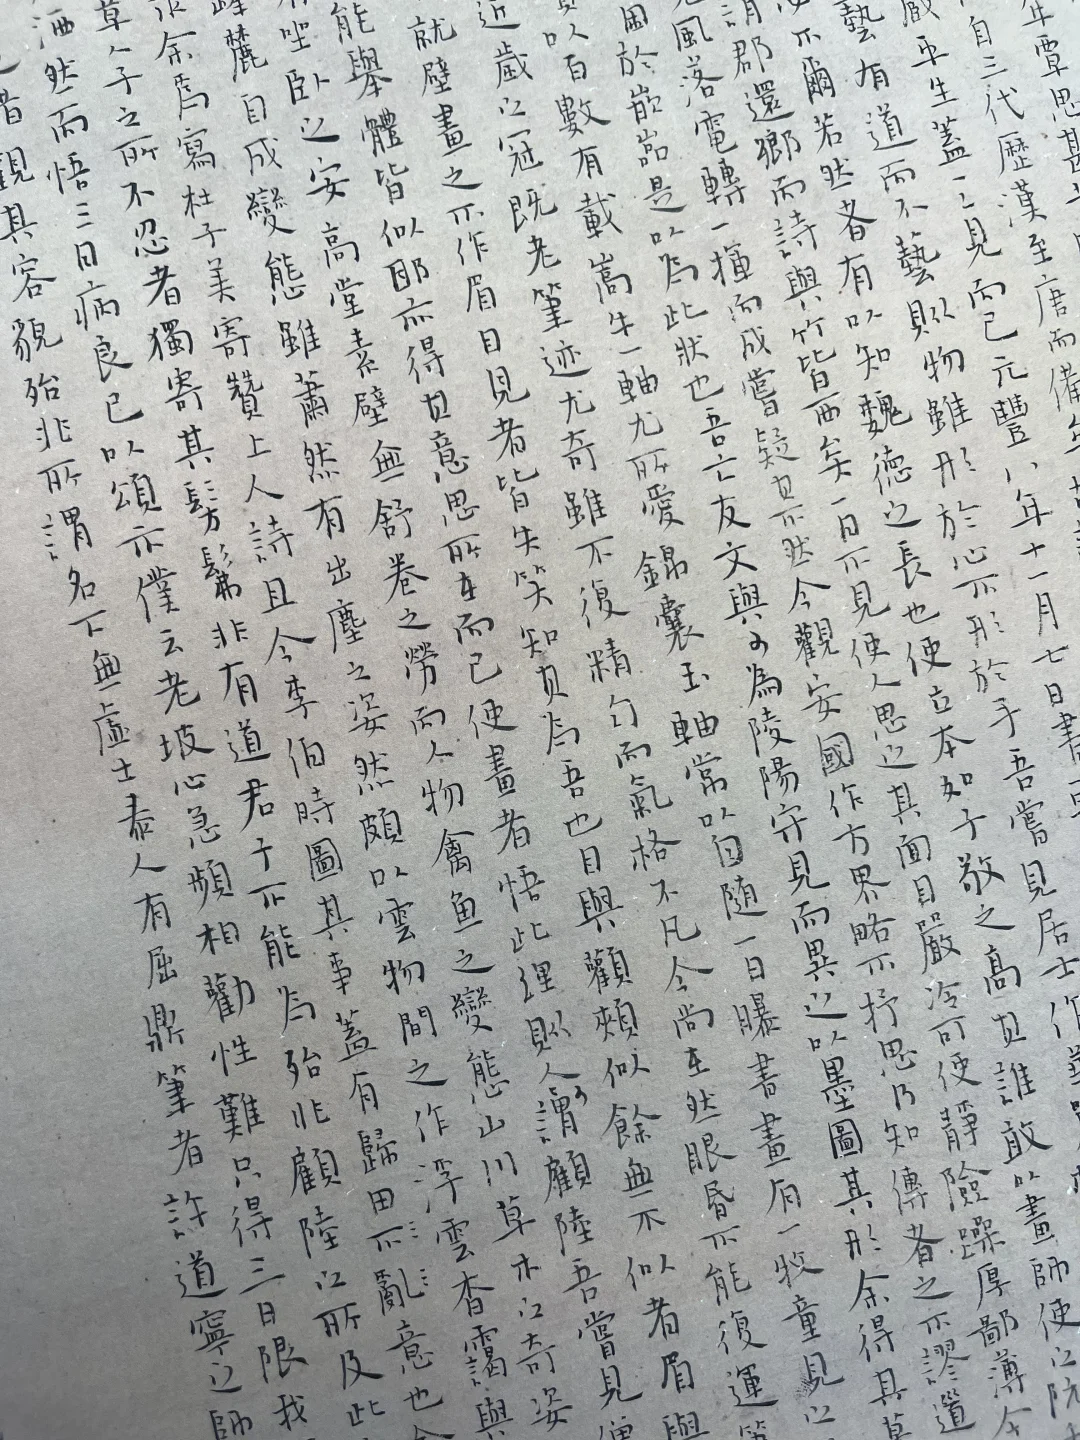 年覃思甚
自三代歷漢至唐而備
嚴平生蓋一一見而已元豐八年十一月七日書
藝有道而不藝則物雖形於心不形於手吾嘗見居士作
不爾若然者有以知魏德之長也使立本如子敬之高其誰敢以畫師使之
謂郡還鄉而詩與竹皆西矣一日不見使人思之其面目嚴冷可使靜險躁厚鄙薄今
風落電轉一揮而成嘗疑其不然今觀安國作方界略不抒思乃知傳者之不謬
困於嵌巖是以為此狀也吾亡友文與可為陵陽守見而異之以墨圖其形余得其
以百數有戴嵩牛一軸尤所愛錦囊玉軸常以自隨一日曝書畫有一牧童見之
近歲江冠既老筆迹尤奇雖不復精勻而氣格不凡今尚在然眼昏不能復運筆
就壁畫之不作眉目見者皆失笑知其為吾也目與顴頰似餘無不似者眉與
能舉體皆似耶亦得其意思所在而已使畫者悟此理則人人可謂顧陸吾嘗見僧
坐臥之安高堂素壁無舒卷之勞而人物禽魚之變態山川草木之奇姿
峰麓自成變態雖蕭然有出塵之姿然頗以雲物間之作浮雲杳靄與
余為寫杜子美寄贊上人詩且令李伯時圖其事蓋有歸田不亂意也
草人子之所不忍者獨寄其髣髴非有道君子不能為殆非顧陸之所及此
洒然而悟三日病良已以頌示僕云老坡心急頻相勸性難只得三日限我
者觀其容貌殆非所謂名下無虛士泰人有屈鼎筆者許道寧之師